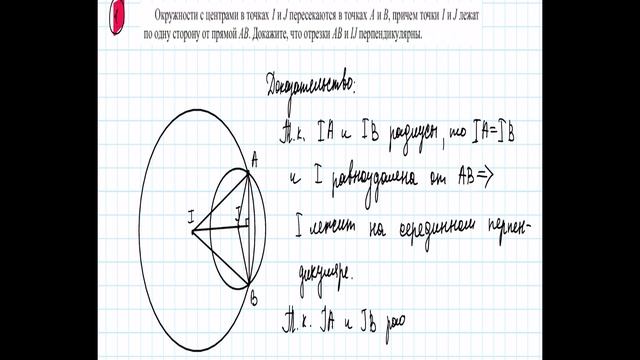 Окружности с центрами в точках I и J пересекаются в точках A и B, причем точки I и J лежат
по одну сторону от прямой AB. Докажите, что отрезки AB и IJ перпендикулярны.
Доказательство:
Т.к. IA и IB радиусы, то IA=IB
и I равноудалена от AB =>
I лежит на серединном перпен-
дикуляре.
Т.к. JA и JB ра
A
I
J
B